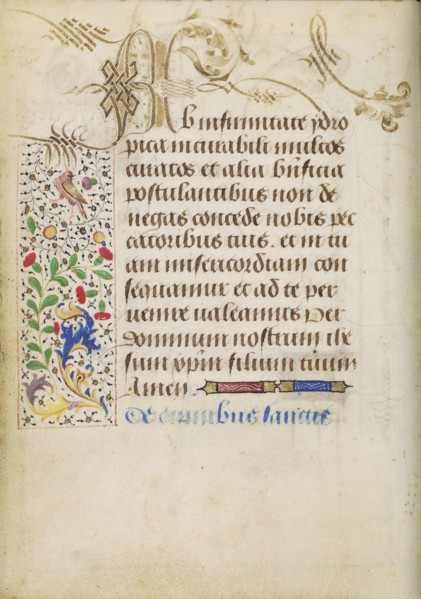 Ab infirmitate ydro
pica incurabili multos
curatos et alia bñficia
postulantibus non de
negas concede nobis pec
catoribus tuis. et in tu
am misericordiam con
sequamur et ad te per
uenire ualeamus Per
dominum nostrum ihe
sum xp̄m filium tuum
Amen
De omnibus sanctis